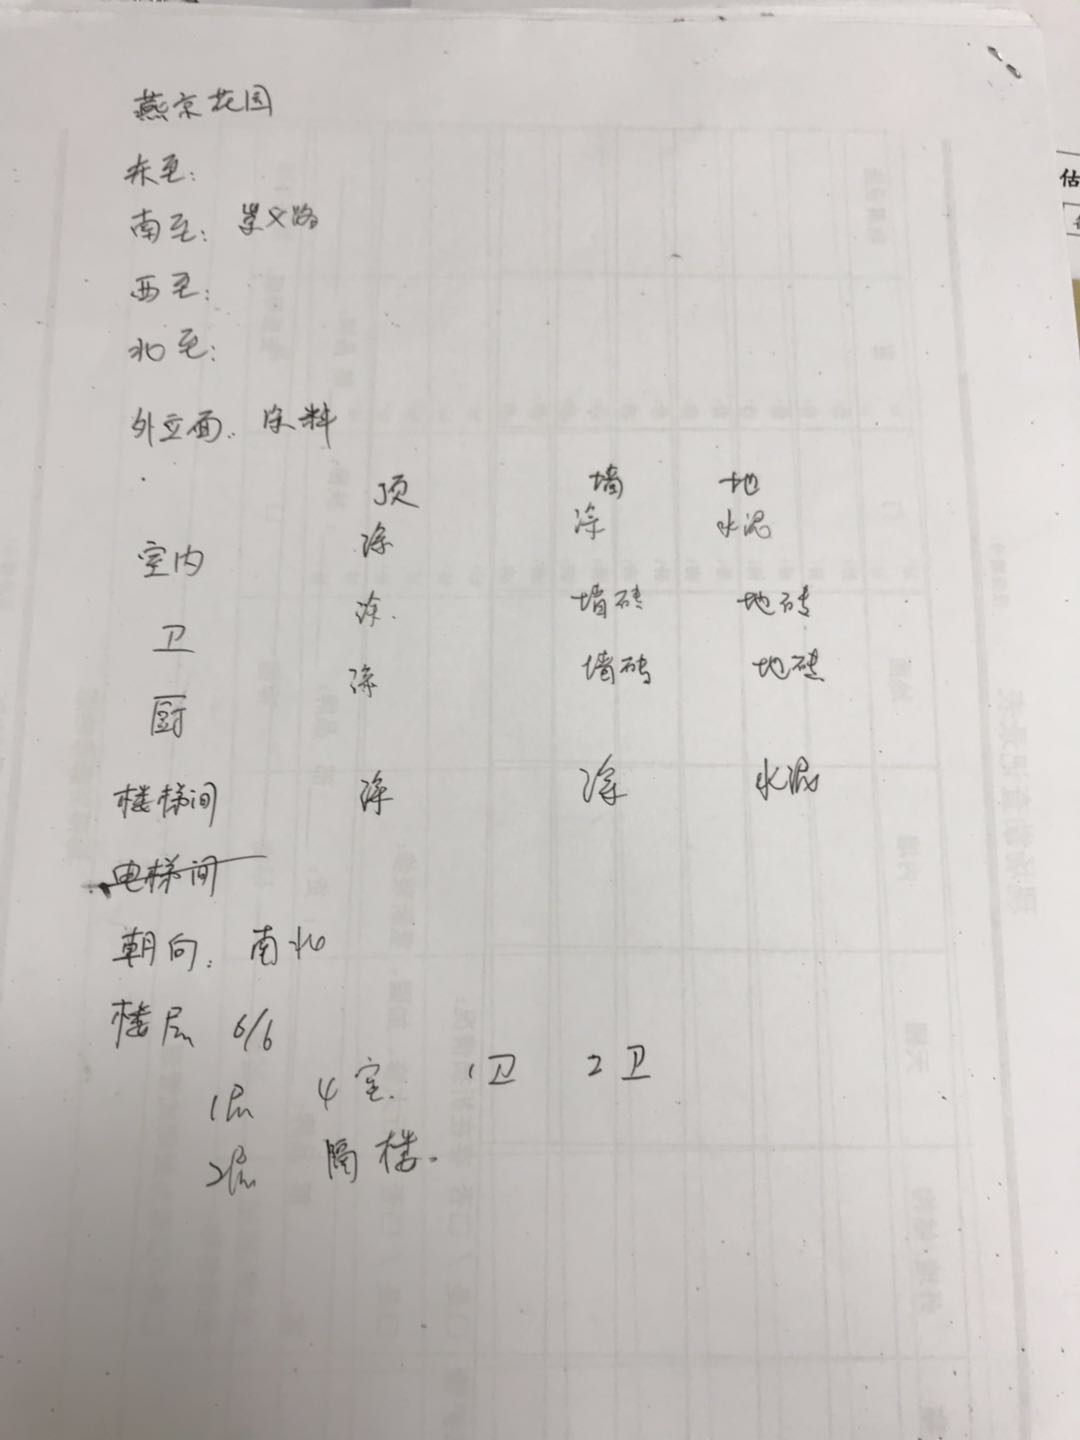 燕京花园
东至：
南至：崇义路
西至：
北至：
外立面：涂料
顶 墙 地
室内 涂 涂 水泥
卫 涂. 墙砖 地砖
厨 涂 墙砖 地砖
楼梯间 涂 涂 水泥
电梯间
朝向：南北
楼层 6/6
1层 4室. 1卫 2卫
2层 隔楼.
估